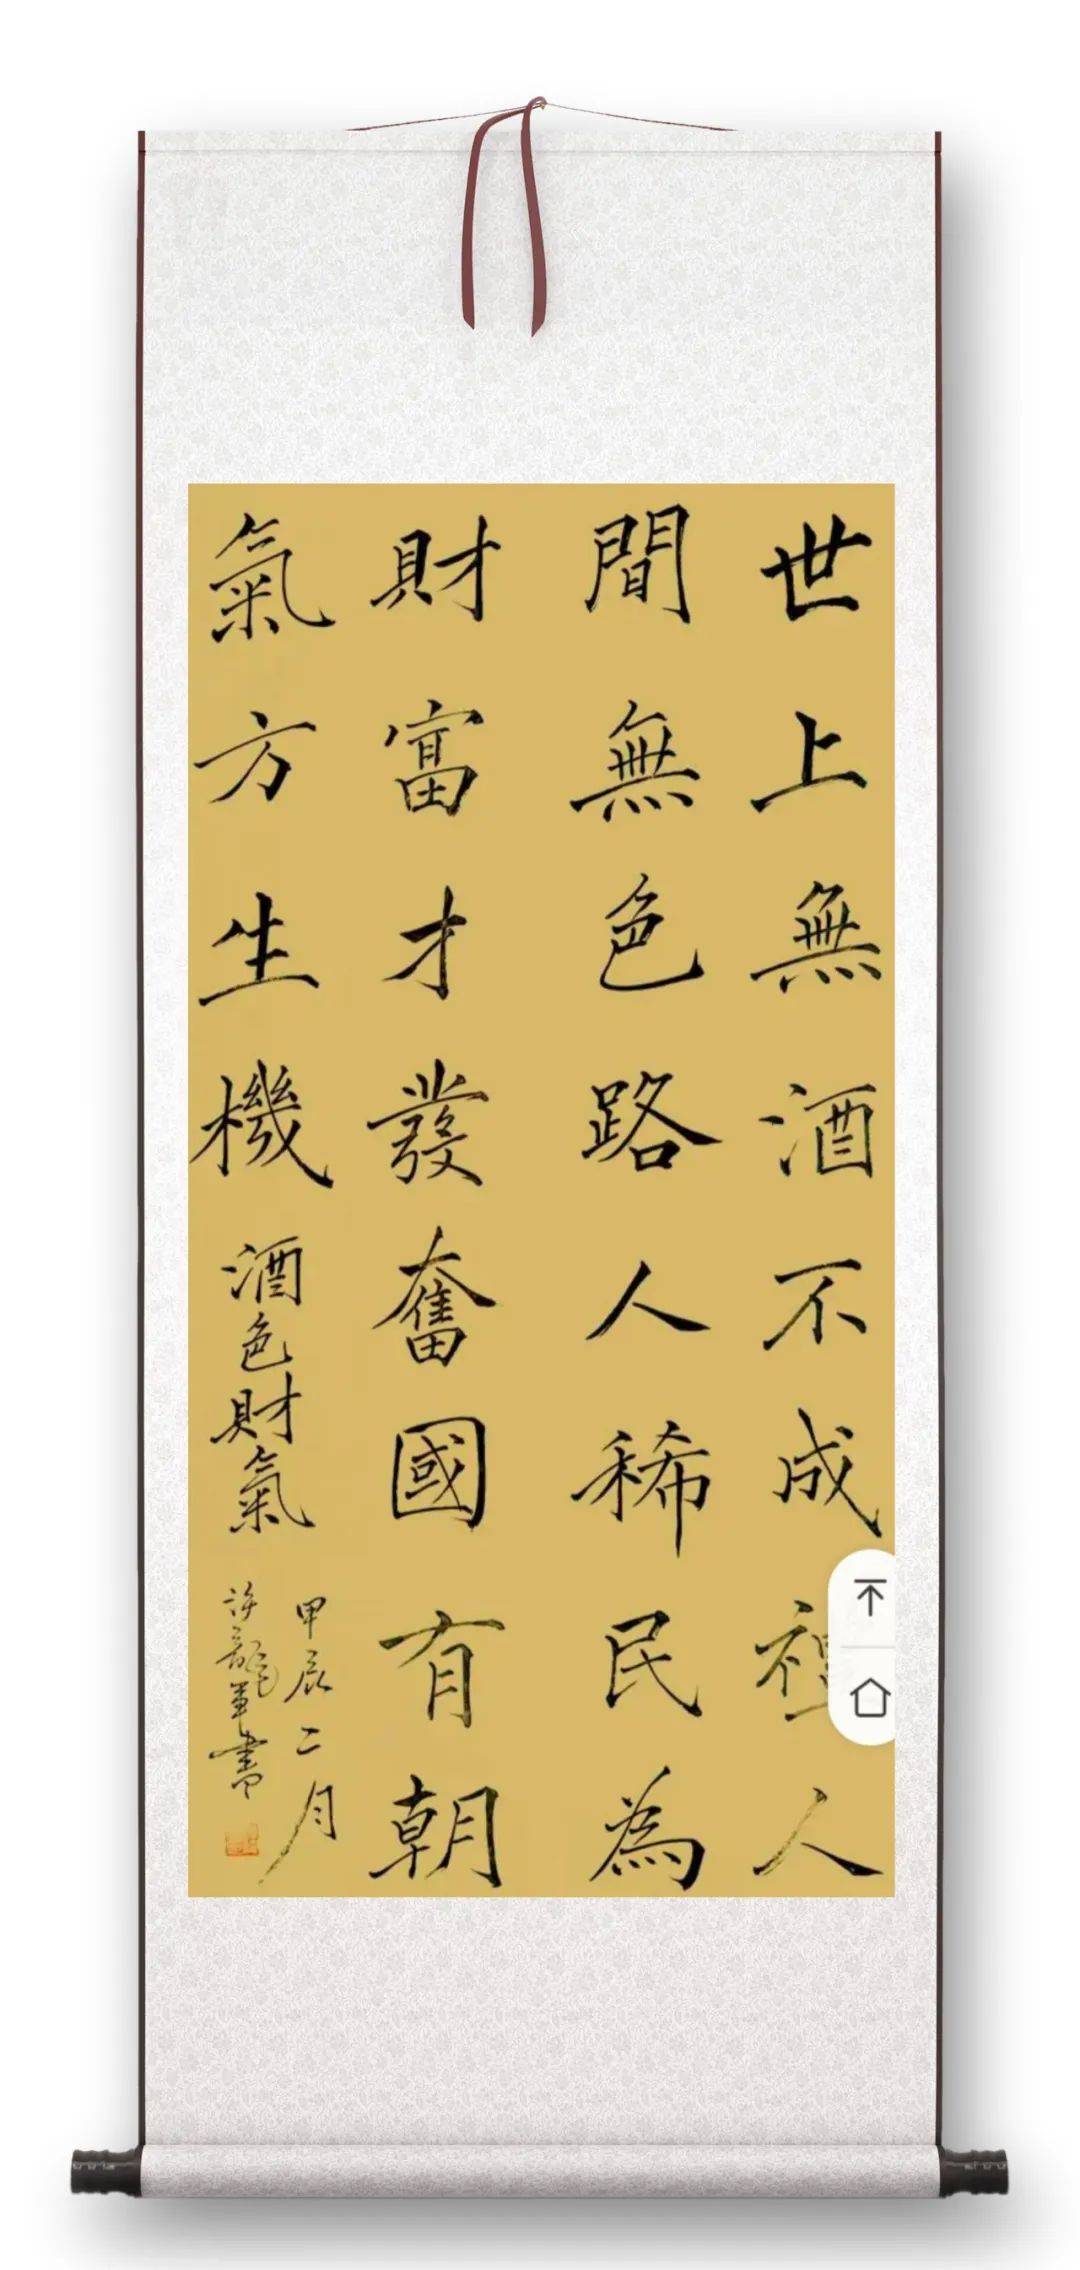 世上無酒不成禮人
間無色路人稀民為
財富才發奮國有朝
氣方生機酒色財氣
甲辰二月
許龍軍書